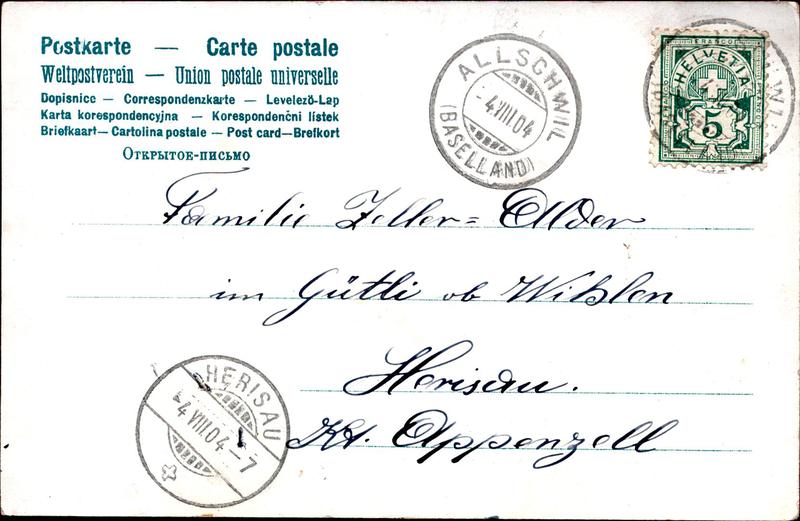 Postkarte — Carte postale
Weltpostverein — Union postale universelle
Dopisnice — Correspondenzkarte — Levelező-Lap
Karta korespondencyjna — Korespondenční lístek
Briefkaart — Cartolina postale — Post card — Brefkort
Открытое-письмо
ALLSCHWIL
4.VIII.04
(BASELLAND)
FRANCO
HELVETIA
5
Familie Zeller=Alder
im Gütli ob Wißlen
Herisau.
Kt. Appenzell
HERISAU
4.VIII.04-7